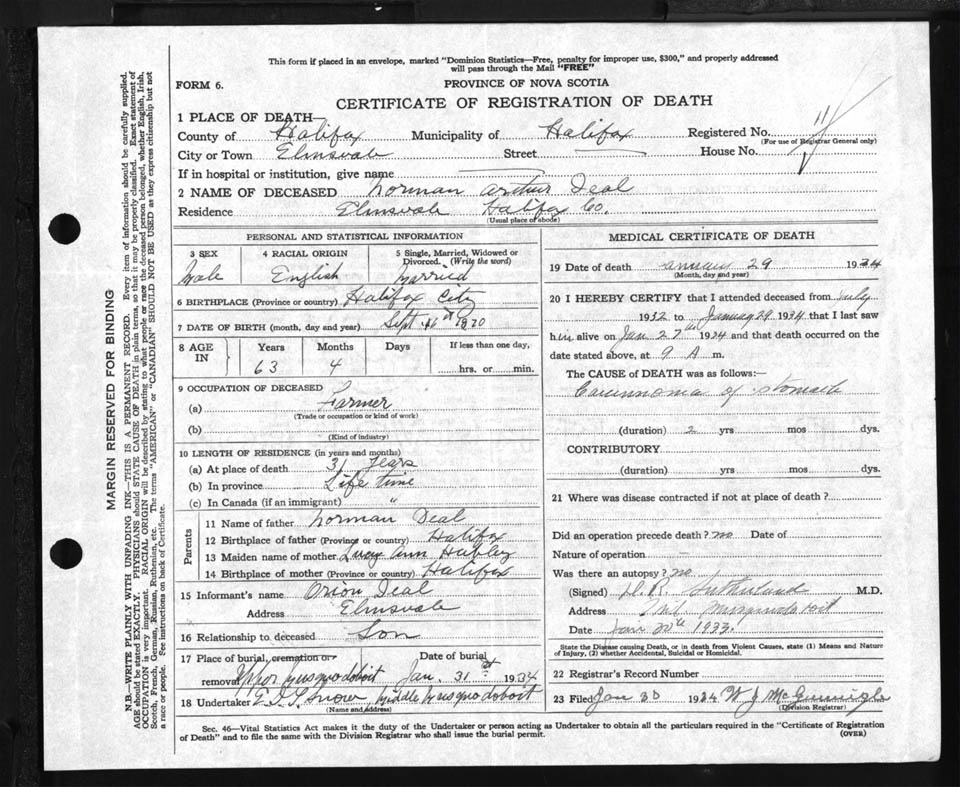 This form if placed in an envelope, marked "Dominion Statistics—Free, penalty for improper use, $300," and properly addressed
will pass through the Mail "FREE"
FORM 6.
PROVINCE OF NOVA SCOTIA
CERTIFICATE OF REGISTRATION OF DEATH
1 PLACE OF DEATH—
County of Halifax Municipality of Halifax Registered No. 11
(For use of Registrar General only)
City or Town Elmsvale Street House No.
If in hospital or institution, give name
2 NAME OF DECEASED Norman Arthur Deal
Residence Elmsvale Halifax Co.
(Usual place of abode)
PERSONAL AND STATISTICAL INFORMATION
3 SEX 4 RACIAL ORIGIN 5 Single, Married, Widowed or
Divorced. (Write the word)
Male English Married
6 BIRTHPLACE (Province or country) Halifax City
7 DATE OF BIRTH (month, day and year) Sept 1870
8 AGE IN Years Months Days If less than one day,
63 4 hrs. or min.
9 OCCUPATION OF DECEASED
(a) Farmer
(Trade or occupation or kind of work)
(b)
(Kind of industry)
10 LENGTH OF RESIDENCE (in years and months)
(a) At place of death 31 Years
(b) In province Life time
(c) In Canada (if an immigrant) "
Parents
11 Name of father Norman Deal
12 Birthplace of father (Province or country) Halifax
13 Maiden name of mother Lucy Ann Hubley
14 Birthplace of mother (Province or country) Halifax
15 Informant's name Orion Deal
Address Elmsvale
16 Relationship to deceased Son
17 Place of burial, cremation or Date of burial
removal Upper Musquodoboit Jan. 31st 1934
18 Undertaker Snow Middle Musquodoboit
(Name and address)
MEDICAL CERTIFICATE OF DEATH
19 Date of death January 29 1934
(Month, day and year)
20 I HEREBY CERTIFY that I attended deceased from July
1932 to January 29 1934 that I last saw
him alive on Jan 27th 1934 and that death occurred on the
date stated above, at 9 A m.
The CAUSE of DEATH was as follows:—
Carcinoma of stomach
(duration) 2 yrs mos dys.
CONTRIBUTORY
(duration) yrs mos dys.
21 Where was disease contracted if not at place of death?
Did an operation precede death? no Date of
Nature of operation –
Was there an autopsy? no
(Signed) Sutherland M.D.
Address Mid. Musquodoboit
Date Jan 30th 1933.
State the Disease causing Death, or in death from Violent Causes, state (1) Means and Nature
of Injury, (2) whether Accidental, Suicidal or Homicidal.
22 Registrar's Record Number
23 Filed Jan 30 1934 W J McGunnigle
(Division Registrar)
Sec. 46—Vital Statistics Act makes it the duty of the Undertaker or person acting as Undertaker to obtain all the particulars required in the "Certificate of Registration
of Death" and to file the same with the Division Registrar who shall issue the burial permit.
(OVER)
MARGIN RESERVED FOR BINDING
N.B.—WRITE PLAINLY WITH UNFADING INK—THIS IS A PERMANENT RECORD. Every item of information should be carefully supplied.
AGE should be stated EXACTLY. PHYSICIANS should STATE CAUSE OF DEATH in plain terms, so that it may be properly classified. Exact statement of
OCCUPATION is very important. RACIAL ORIGIN will be described by stating to what people or race the deceased person belonged, whether English, Irish,
Scotch, French, German, Russian, Ruthenian, etc. The terms "AMERICAN" or "CANADIAN" SHOULD NOT BE USED as they express citizenship but not
a race or people. See instructions on back of Certificate.